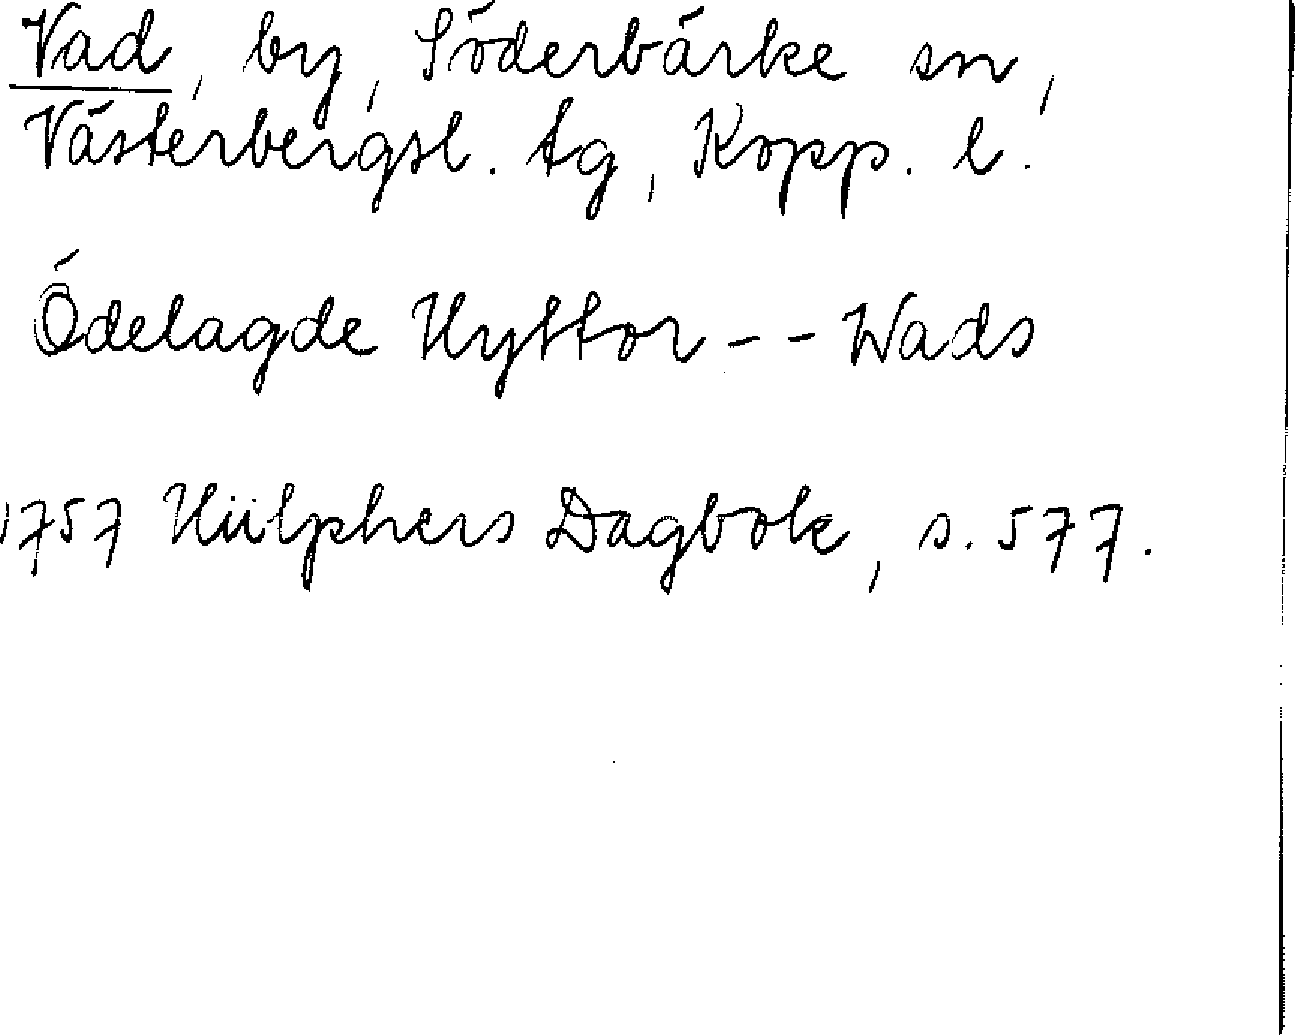 Vad, by, Söderbärke sn,
Västerbergsl. tg, Kopp. l.
Ödelagde Hyttor -- Wads
1757 Hülphers Dagbok, s. 577.